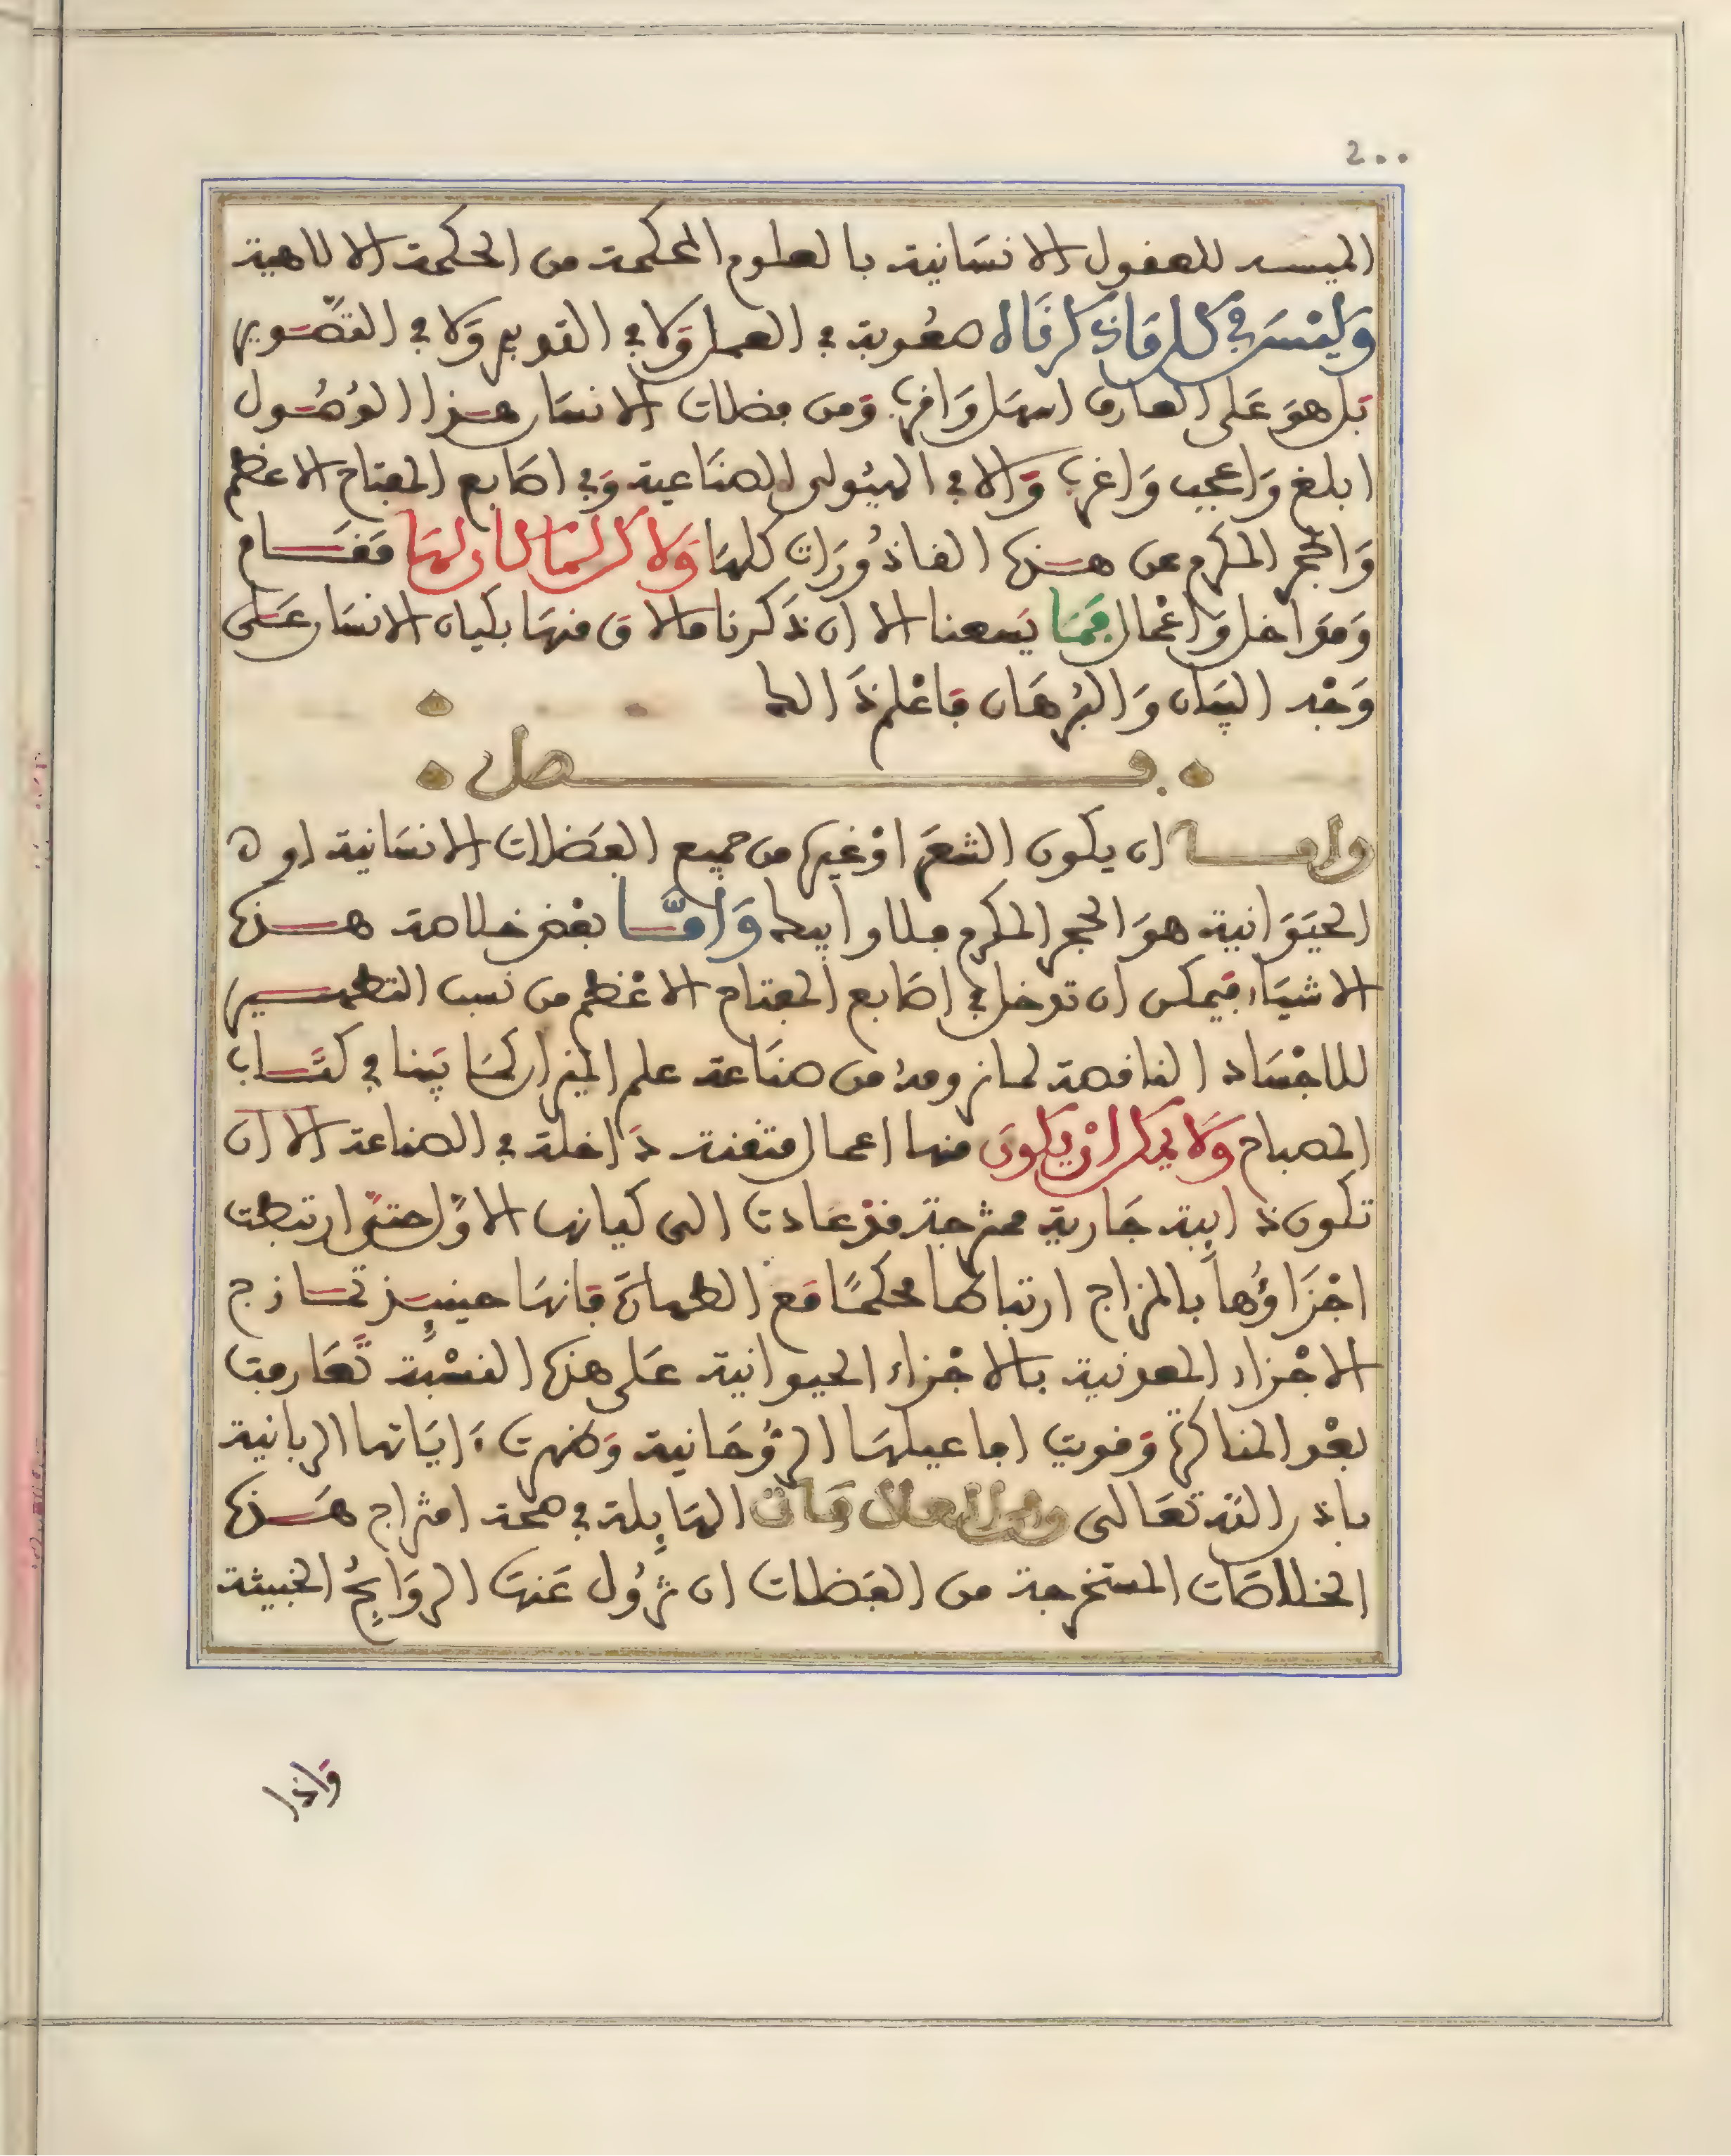 200
الميسر للعقول الانسانية بالعلوم المحكمة من الحكمة الالاهية
وَليْسَ في كل مَا ذكرناه صعُوبة في العمل وَلا في التدبير وَلا في التصَوير
بَل هوَ عَلى العارف اسهل وَاقرب وَمن فضلات الانسان هذا الوُصُول
ابلغ وَاعجب وَاغرب وَالا في الهيُولى الصنَاعية وَفي اصَابع المفتاح الاعظم
وَالحجر المكرم عن هذه القاذُورَات كلهَا وَلاكن لمَا كان لهَا مَقَام
وَمدَاخل وَاعْمال فمَا يَسعنا الا ان ذَكرنا مالاق منهَا بكيان الانسَان عَلى
وَجْه البيَان وَالبُرهَان فاعْلم ذَالك
فصل
واما ان يكون الشعَر اوْ غيره من جميع الفضلات الانسَانية او
الحيَوَانية هوَ الحجر المكرم فلا وابيك وَامَّا بعْض خلاصة هذه
الاشيَاء فيَمكن ان تدخل في اصَابع المفتاح الاعْظم من نسب التطهير
للاجْسَاد الناقصة لما نرومه من صنَاعة علم الميزان كمَا بيَنا في كتَاب
المصباح وَلا يمكن انْ يكُون منها اعمال متقنة دَاخلة في الصناعة الا ان
تكون ذايبة جَارية ممتزجة قدْ عَادت الى كيانها الاوَّل حتى ارتبطت
اجْزَاؤُها بالمزاج ارتباطا محكمًا مَع الطهارَة فانهَا حينيذ تمَازج
الاجْزاء المعدنية بالاجْزاء الحيوانية عَلى هذه النسْبة تَعَارفت
بعْد المناكرة وَقويت افاعيلهَا الرُّوحَانية وَظهرت ءايَاتها الربانية
باذن الله تعَالى وامَّا العلامَات الهَايلة في صحة امتزاج هَذه
الخلاصَات المستخرجة من الفضلات ان تزُول عَنهَا الروَايحُ الخبيثة
وَاذا